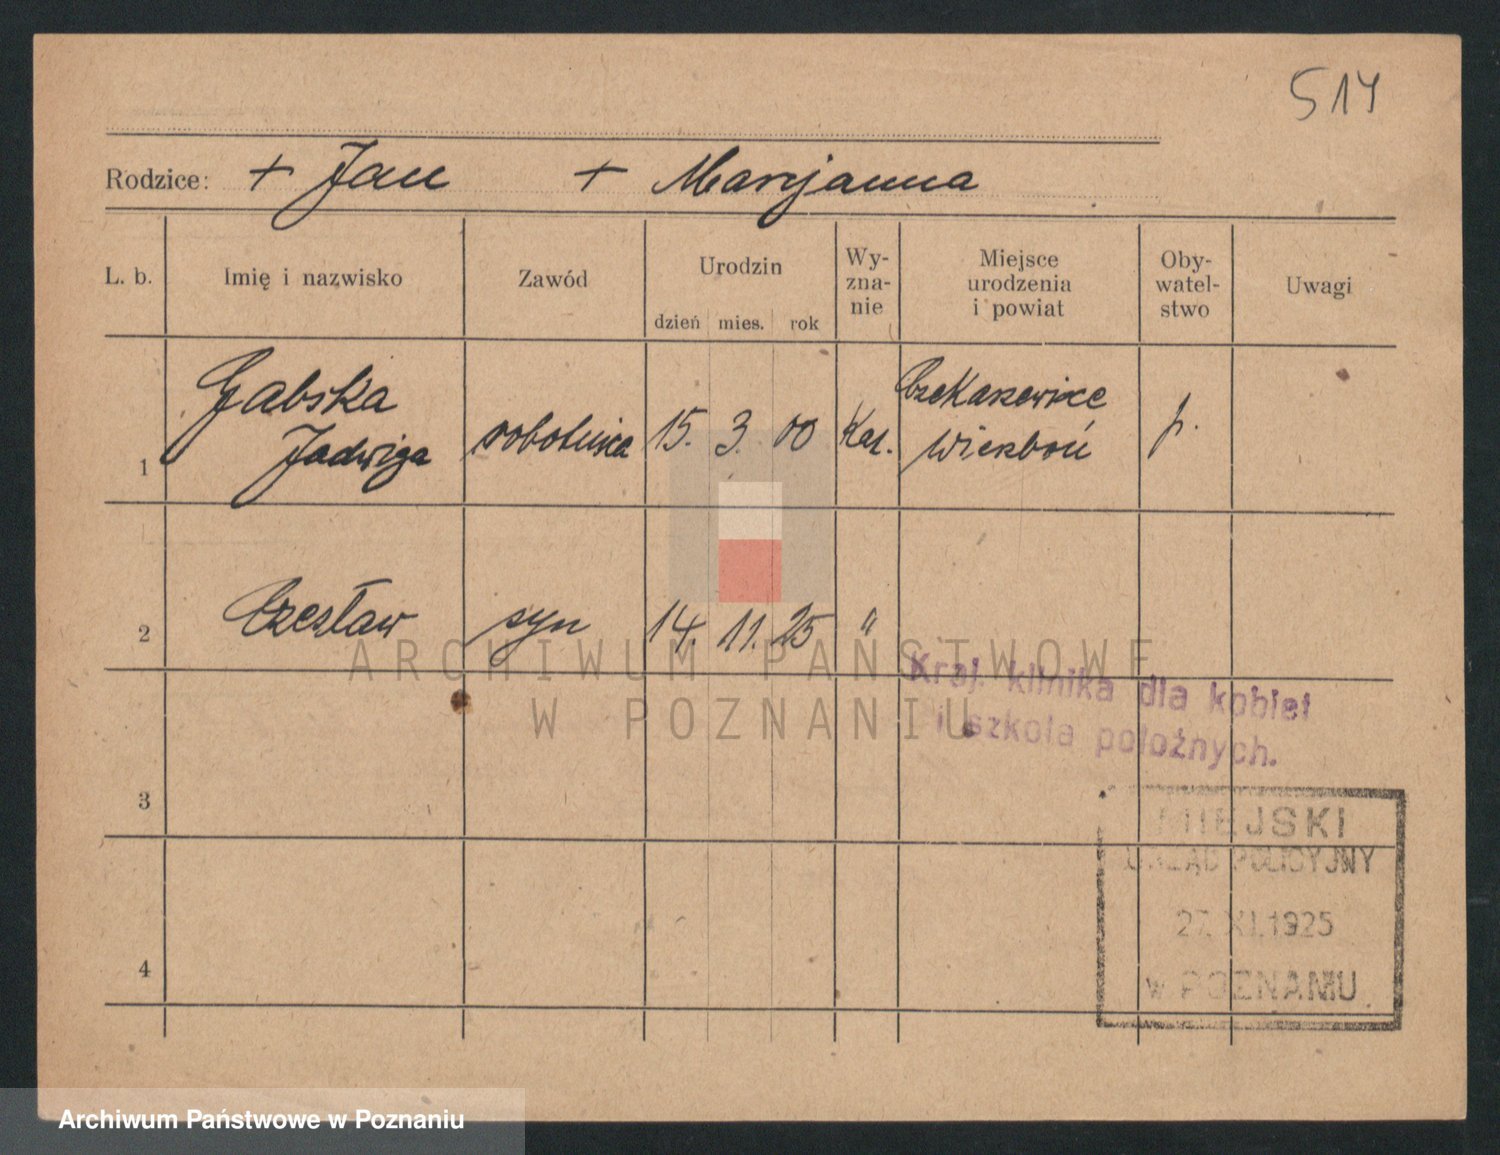 514
Rodzice: + Jan + Maryjanna
L. b. Imię i nazwisko Zawód Urodzin dzień mies. rok Wy-zna-nie Miejsce urodzenia i powiat Oby-watel-stwo Uwagi
1 Gabska Jadwiga robotnica 15. 3. 00 Kat. Czekaszewice p.
2 Czesław syn 14. 11. 25 "
3
4
Kraj. klinika dla kobiet
i szkoła położnych.
MIEJSKI
URZĄD POLICYJNY
27. XI. 1925
w POZNANIU
ARCHIWUM PAŃSTWOWE
W POZNANIU
Archiwum Państwowe w Poznaniu